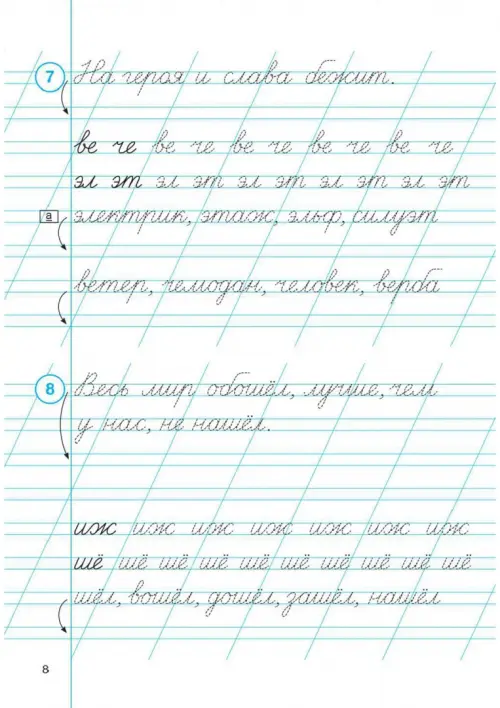 7 На героя и слава бежит.
ве че ве че ве че ве че ве че
эл эт эл эт эл эт эл эт эл эт
а электрик, этаж, эльф, силуэт
ветер, чемодан, человек, верба
8 Весь мир обошёл, лучше, чем
у нас, не нашёл.
иж иж иж иж иж иж иж
шё шё шё шё шё шё шё шё шё шё
шёл, вошёл, дошёл, зашёл, нашёл
8